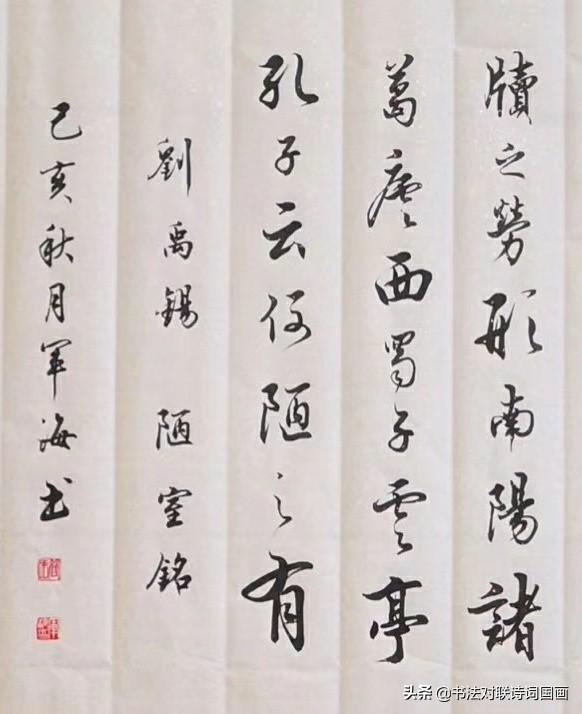 牘之勞形南陽諸
葛廬西蜀子雲亭
孔子云何陋之有
劉禹錫 陋室銘
己亥秋月軍海书
头条 @书法对联诗词国画